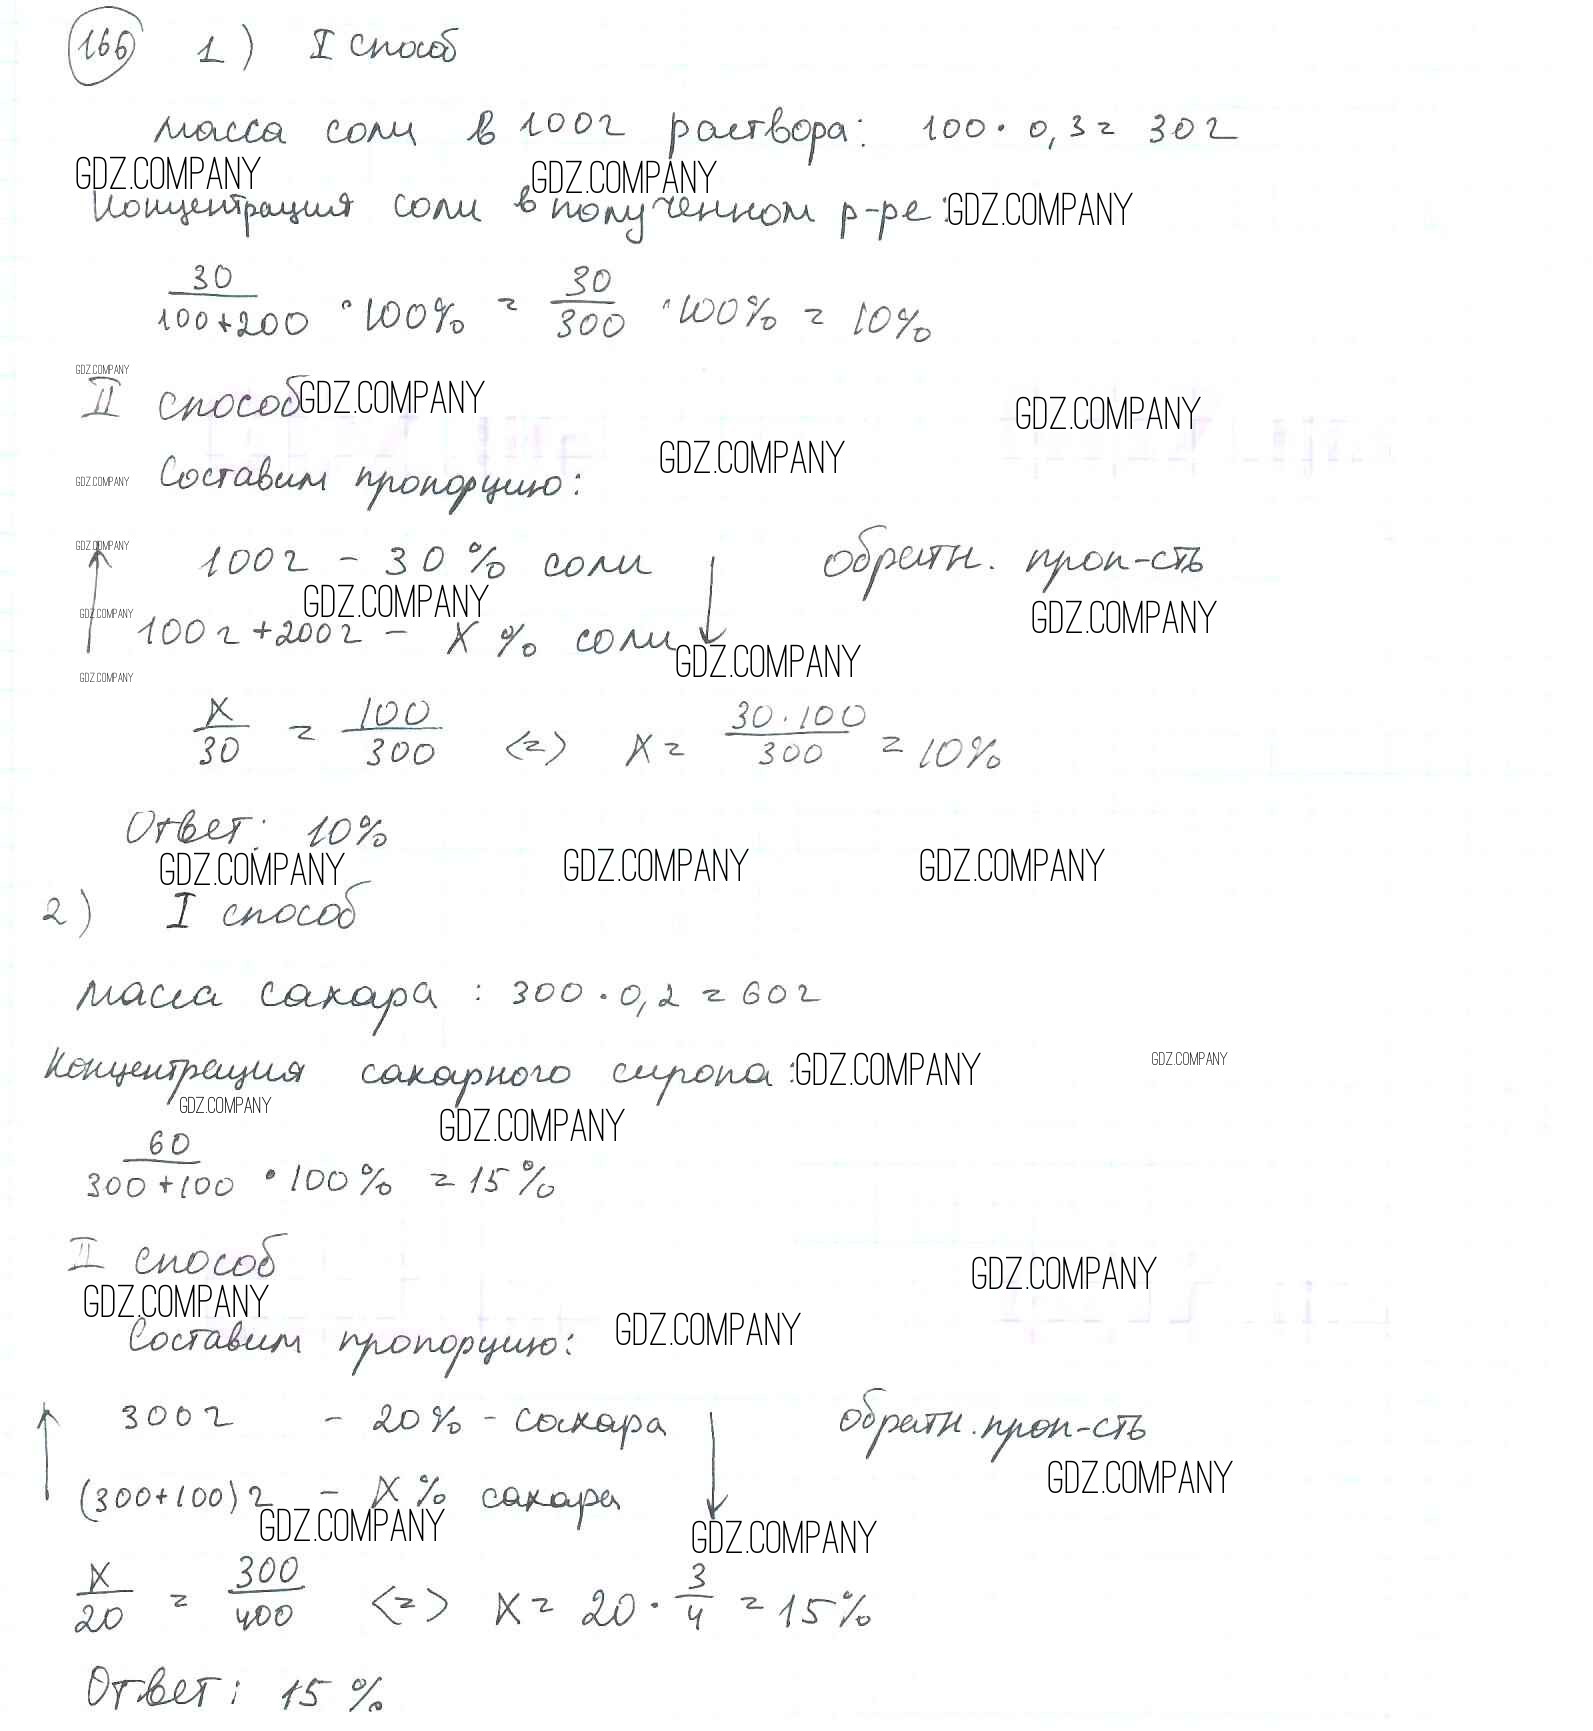 166 1) I способ
масса соли в 100г раствора: 100 · 0,3 = 30г
GDZ.COMPANY GDZ.COMPANY
Концентрация соли в полученном р-ре: GDZ.COMPANY
30/(100+200) · 100% = 30/300 · 100% = 10%
GDZ.COMPANY
II способ GDZ.COMPANY GDZ.COMPANY
GDZ.COMPANY
GDZ.COMPANY Составим пропорцию:
GDZ.COMPANY
↑ 100г - 30% соли ↓ обратн. проп-сть
GDZ.COMPANY GDZ.COMPANY GDZ.COMPANY
100г+200г - X% соли
GDZ.COMPANY GDZ.COMPANY
X/30 = 100/300 <=> X = 30·100/300 = 10%
Ответ: 10%
GDZ.COMPANY GDZ.COMPANY GDZ.COMPANY
2) I способ
масса сахара : 300 · 0,2 = 60г
Концентрация сахарного сиропа: GDZ.COMPANY GDZ.COMPANY
GDZ.COMPANY GDZ.COMPANY
60/(300+100) · 100% = 15%
II способ
GDZ.COMPANY GDZ.COMPANY GDZ.COMPANY
Составим пропорцию:
↑ 300г - 20% - сахара ↓ обратн. проп-сть
GDZ.COMPANY
(300+100)г - X% сахара
GDZ.COMPANY GDZ.COMPANY
X/20 = 300/400 <=> X = 20 · 3/4 = 15%
Ответ: 15%